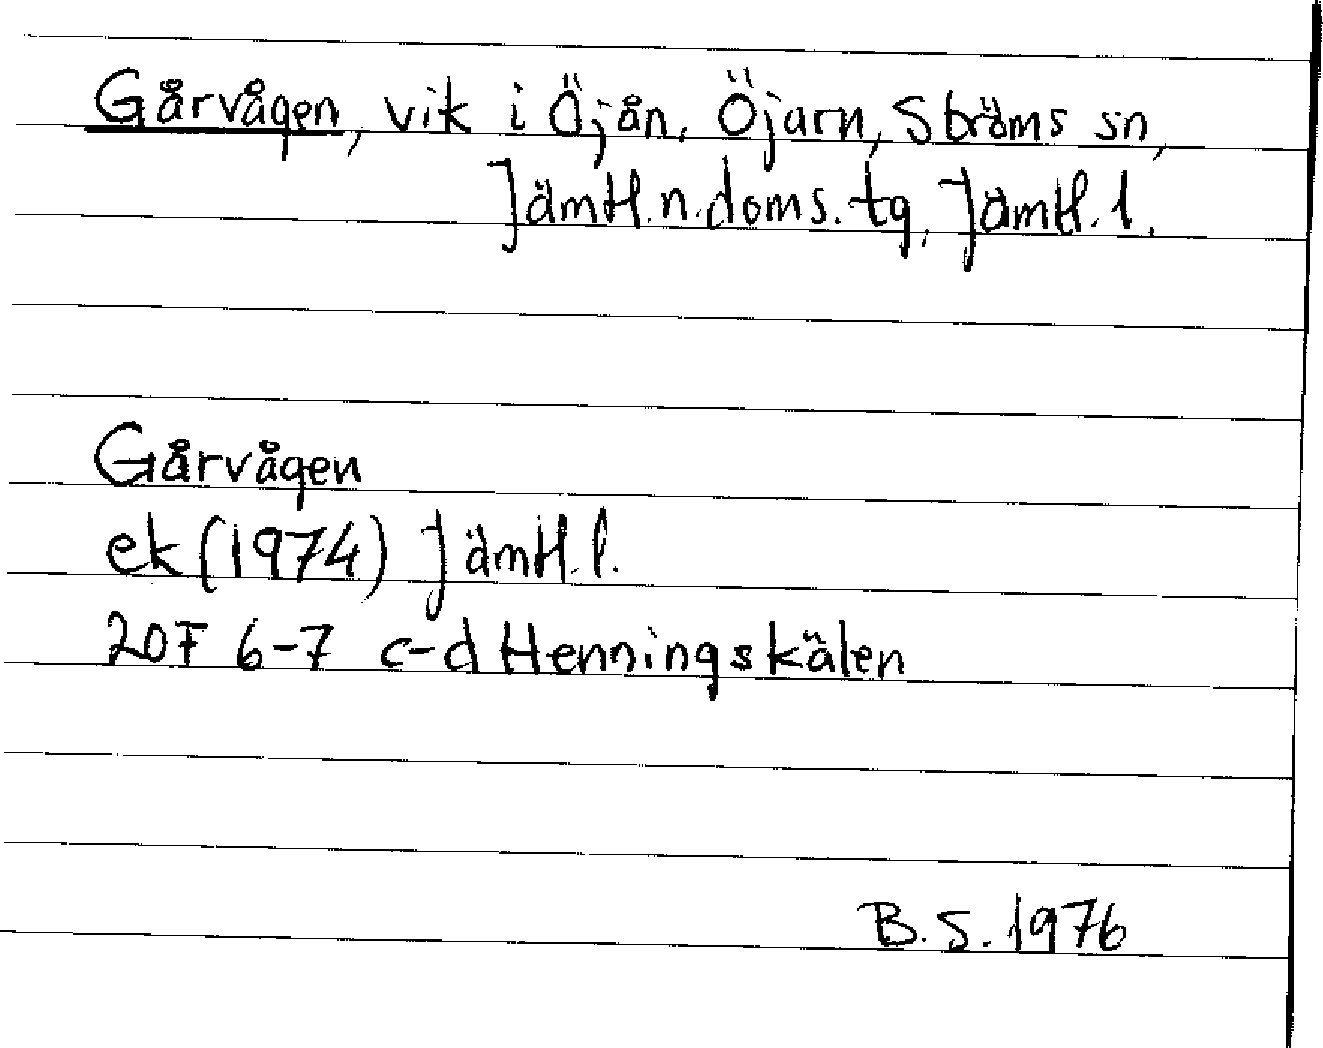 Gårvågen, vik i Öjån, Öjarn, Ströms sn,
Jämtl.n.doms.tg, Jämtl.l.
Gårvågen
ek (1974) Jämtl.l.
20F 6-7 c-d Henningskälen
B.S. 1976